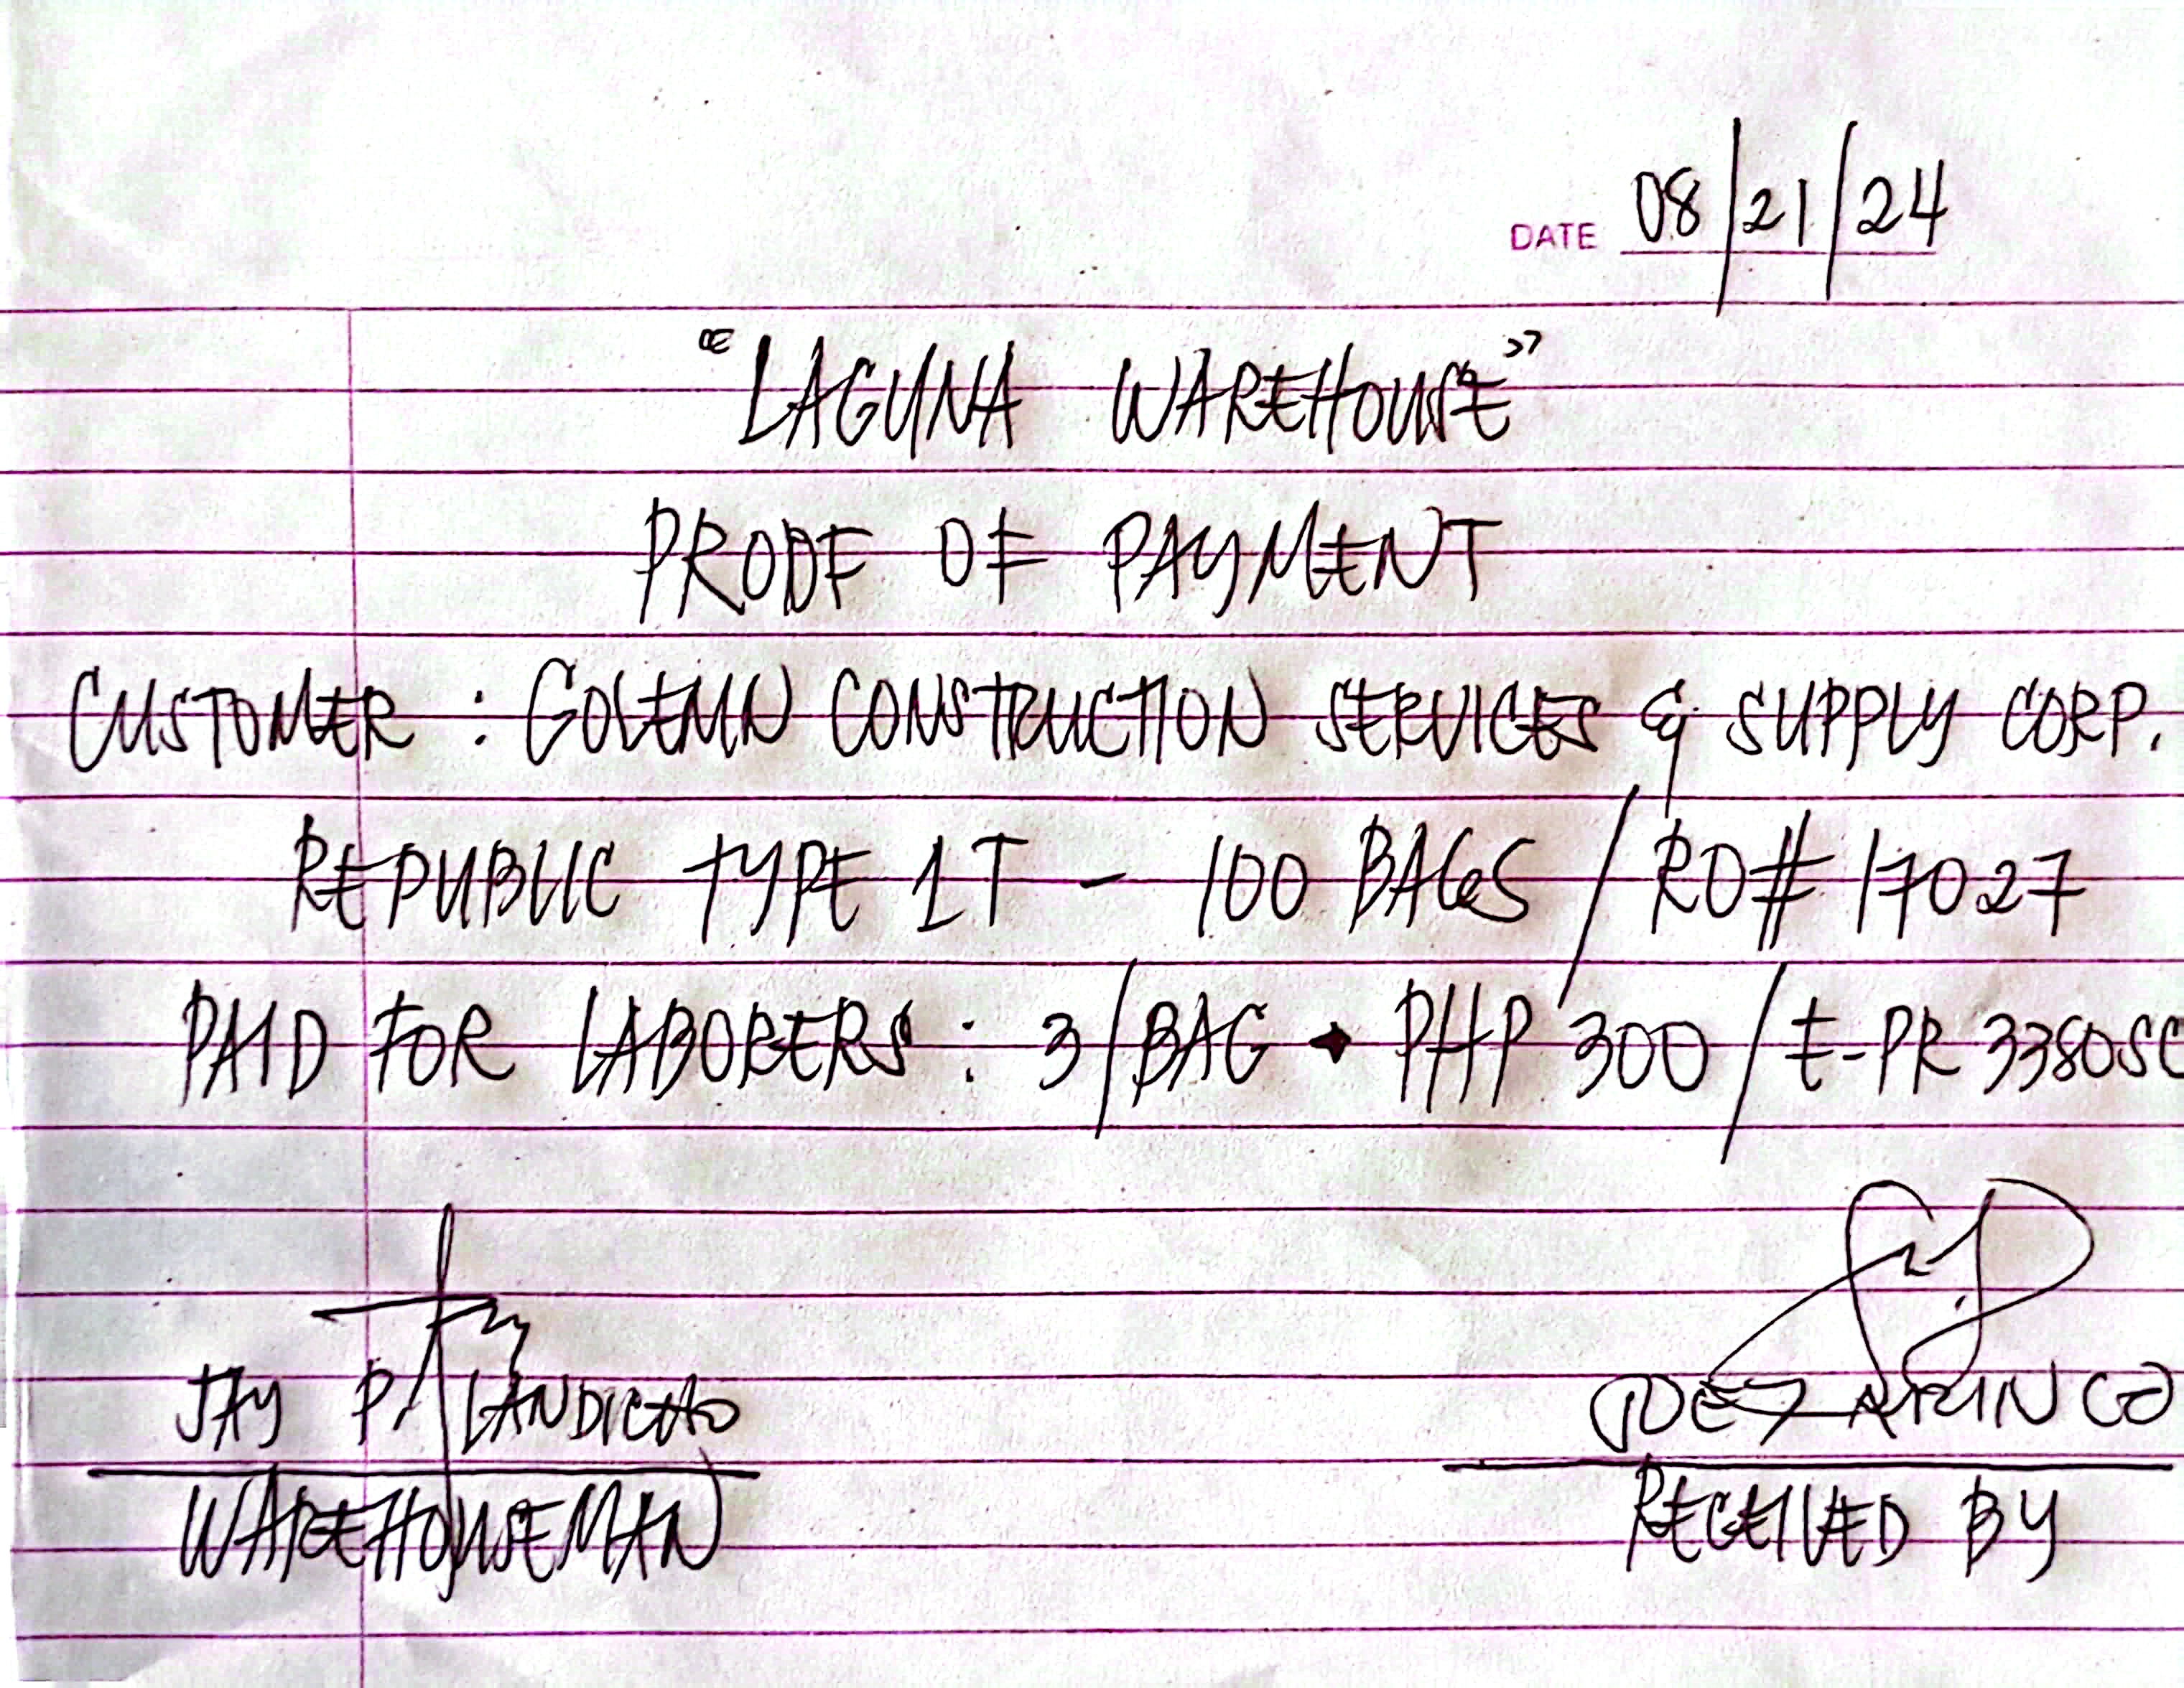 DATE 08/21/24
"LAGUNA WAREHOUSE"
PROOF OF PAYMENT
CUSTOMER : GOLEMN CONSTRUCTION SERVICES & SUPPLY CORP.
REPUBLIC TYPE 1T - 100 BAGS / RO# 17027
PAID FOR LABORERS : 3/BAG • PHP 300 / E-PR 3380SC
JAY P. LANDICHO
WAREHOUSEMAN
RECEIVED BY